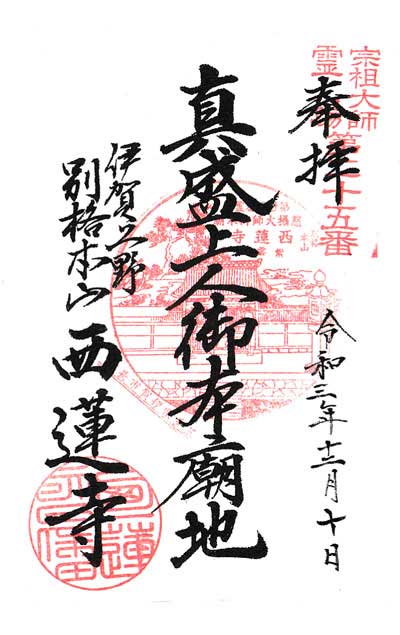 宗祖大師
霊場
奉拝
令和三年十二月十日
真盛上人御本廟地
伊賀上野
別格本山
西蓮寺
西蓮寺